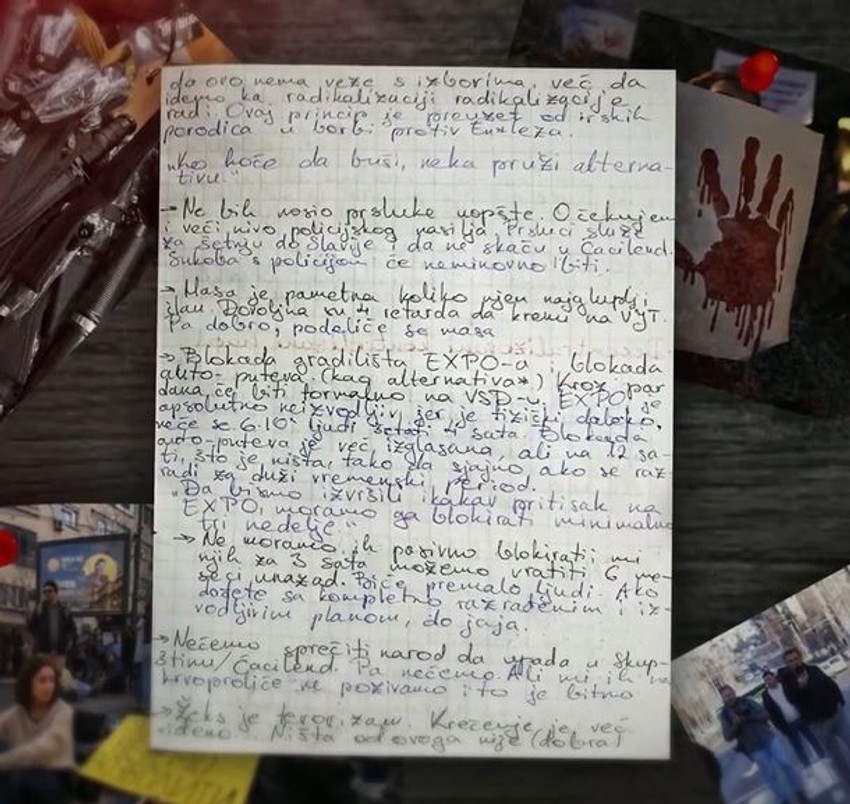 da ovo nema veze s izborima, već da
idemo ka radikalizaciji radikalizacije
radi. Ovaj princip je preuzet od irskih
porodica u borbi protiv Engleza.
„Ko hoće da buši, neka pruži alterna-
tivu."
→ Ne bih nosio prsluke uopšte. Očekujem
i veći nivo policijskog nasilja. Prsluci služe
za šetnju do Slavije i da ne skaču u Ćacilend.
Sukoba s policijom će neminovno biti.
→ Masa je pametna koliko njen najgluplji
član. Dovoljna su 4 retarda da krenu na
Pa dobro, podeliće se masa
→ Blokada gradilišta EXPO-a i blokada
auto-puteva. (kao alternativa*) Kroz par
dana će biti formalno na VSD-u. EXPO je
apsolutno neizvodljiv, jer je fizički daleko,
neće se 6.10⁵ ljudi šetati 4 sata. Blokada
auto-puteva je već izglasana, ali na 12 sa-
ti, što je ništa, tako da sjajno ako se raz-
radi za duži vremenski period.
„Da bismo izvršili ikakav pritisak na
EXPO, moramo ga blokirati minimalno
tri nedelje."
→ Ne moramo ih pasivno blokirati; mi
njih za 3 sata možemo vratiti 6 me-
seci unazad. Biće premalo ljudi. Ako
dođete sa kompletno razrađenim i iz-
vodljivim planom, do jaja.
→ Nećemo sprečiti narod da upada u Skup-
štinu/Ćacilend. Pa nećemo. Ali mi ih na
krvoproliće ne pozivamo i to je bitno
→ Žeks je terorizam. Krečenje je već
ideno. Ništa od ovoga nije (dobra)